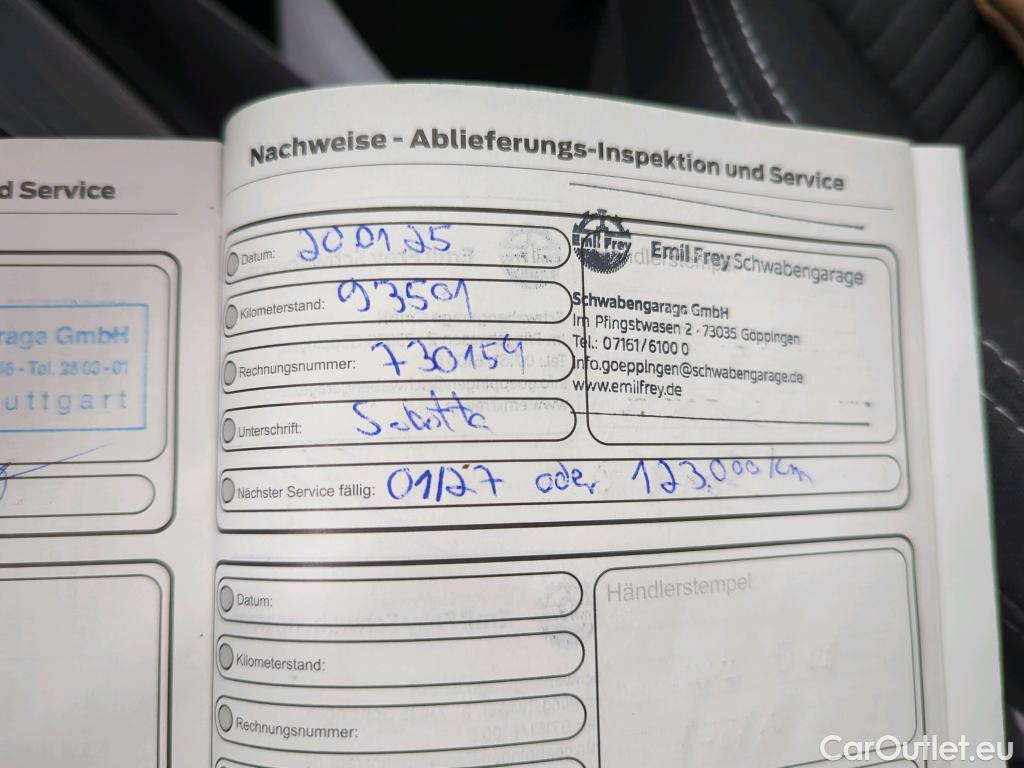 d Service
rage GmbH
46 - Tel. 28 03 - 01
uttgart
Nachweise - Ablieferungs-Inspektion und Service
Datum: 20 01 25
Kilometerstand: 93501
Rechnungsnummer: 730154
Unterschrift:
Nächster Service fällig: 01/27 oder 123.000 km
Emil Frey
Emil Frey Schwabengarage
Schwabengarage GmbH
Im Pfingstwasen 2 · 73035 Göppingen
Tel.: 07161/6100 0
Info.goeppingen@schwabengarage.de
www.emilfrey.de
Datum:
Kilometerstand:
Rechnungsnummer:
Händlerstempel
CarOutlet.eu